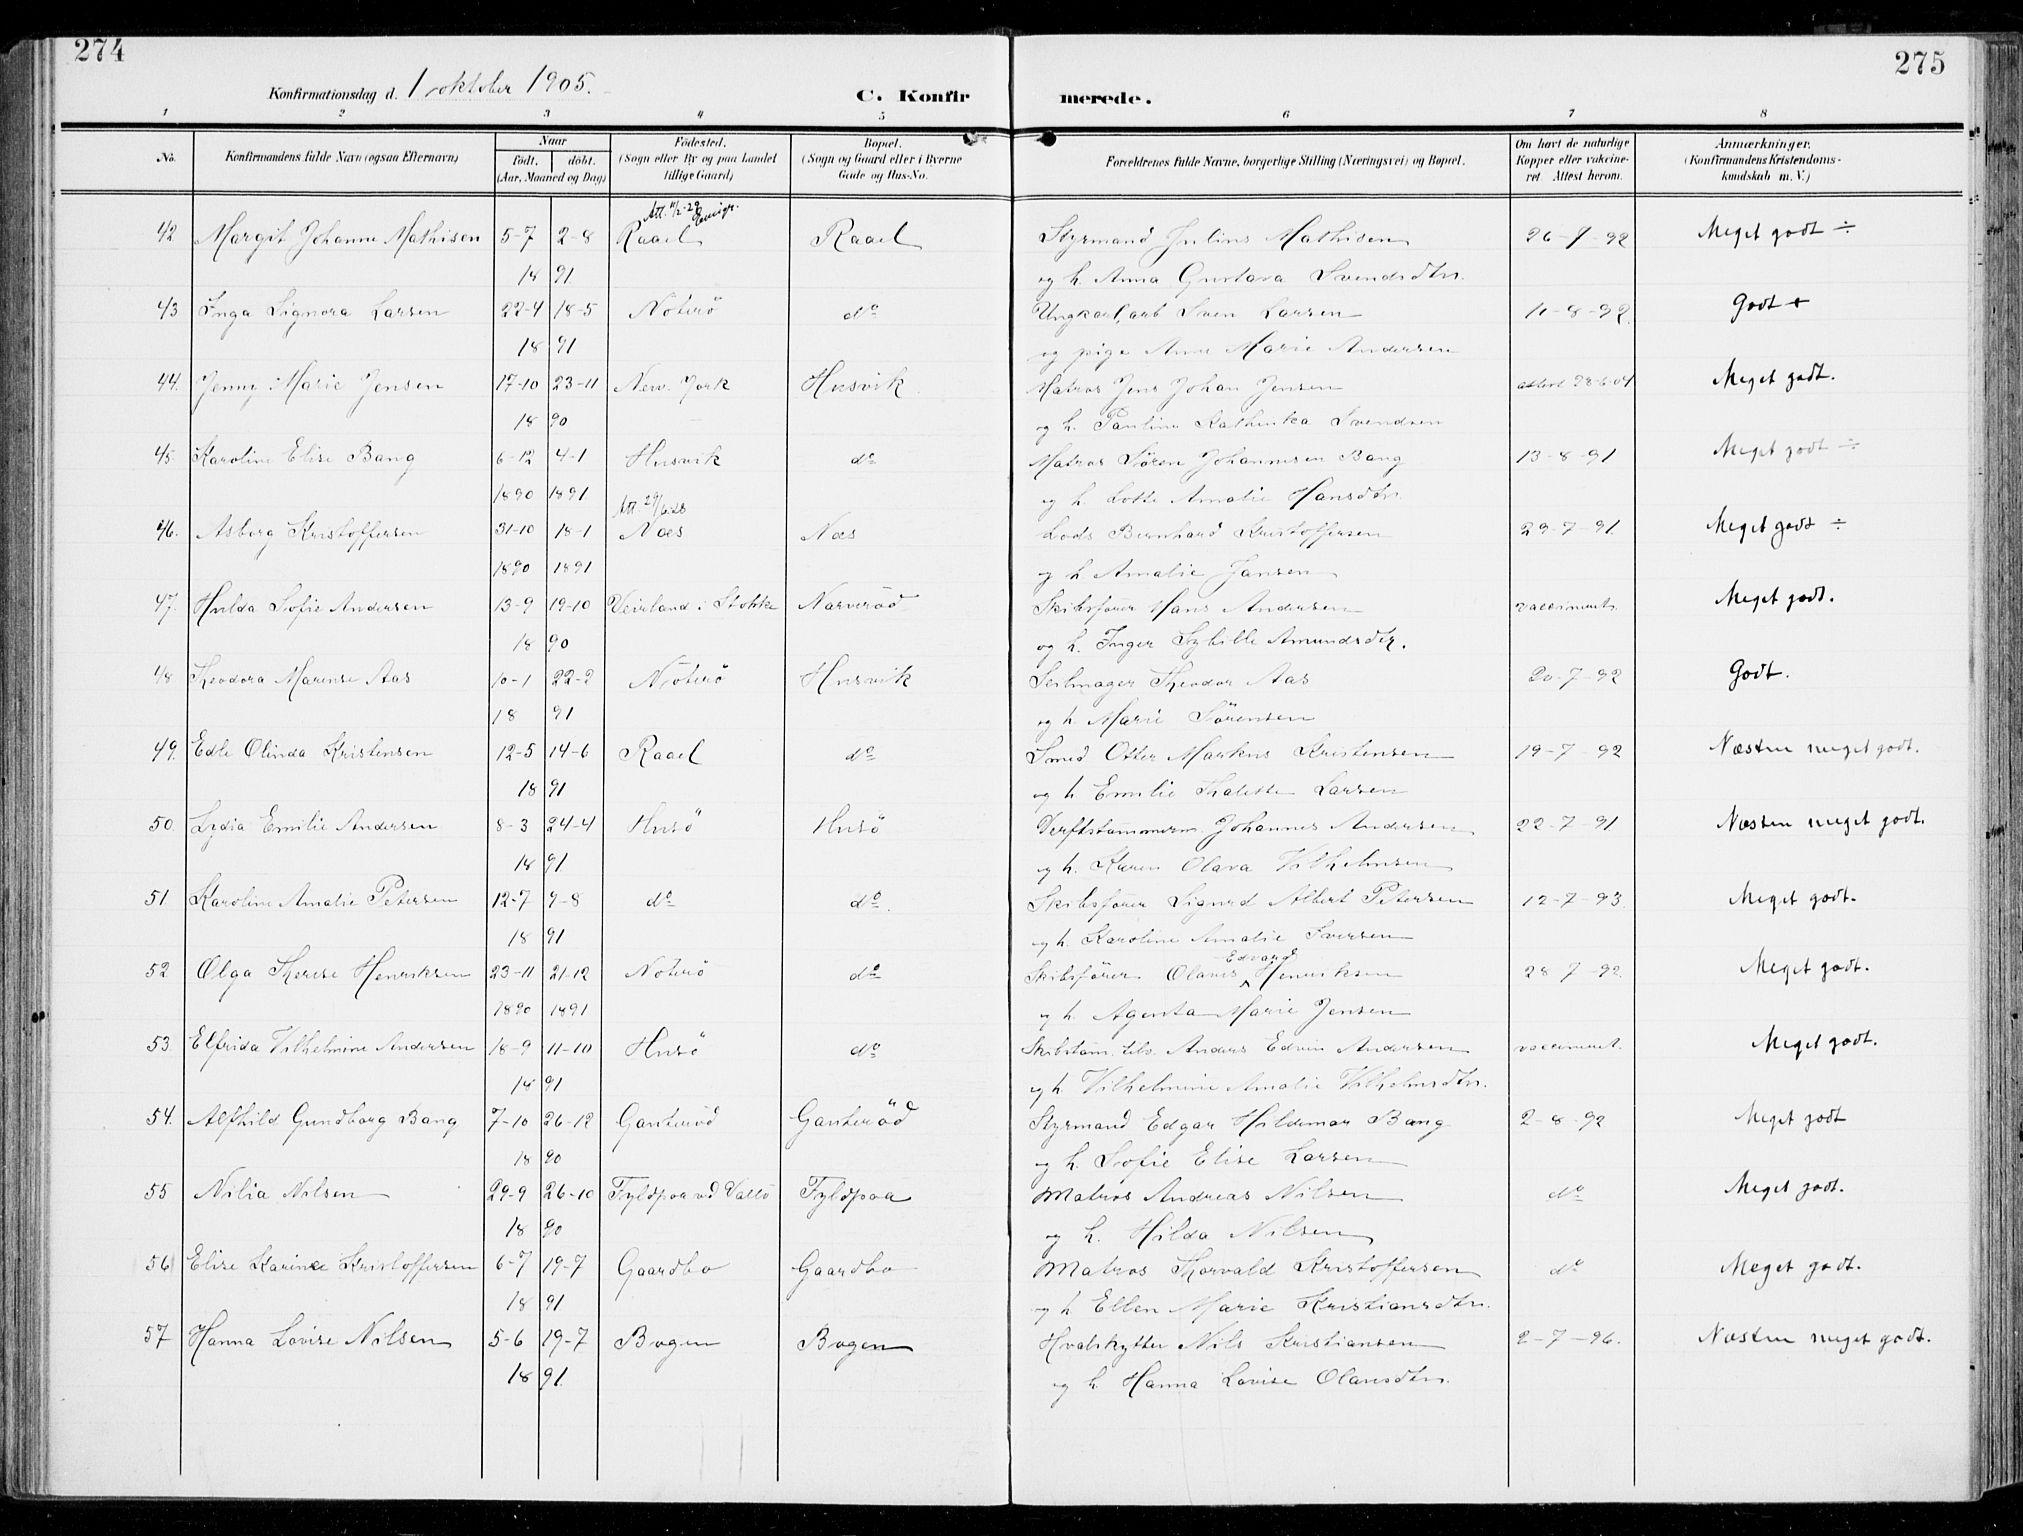 274
275
Konfirmationsdag d. 1 oktober 1905.
C. Konfirmerede.
1 2 3 4 5 6 7 8
No.
Konfirmandens fulde Navn (ogsaa Efternavn)
Naar
födt. döbt.
(Aar, Maaned og Dag)
Födested.
(Sogn eller By og paa Landet
tillige Gaard)
Bopæl.
(Sogn og Gaard eller i Byerne
Gade og Hus-No.
Forældrenes fulde Navne, borgerlige Stilling (Næringsvei) og Bopæl.
Om havt de naturlige
Kopper eller vakcine-
ret. Attest herom.
Anmærkninger.
(Konfirmandens Kristendoms-
kundskab m. V.)
Att. 11/2-29 Emigr.
42 Margit Johanne Mathisen 5-7 2-8 Raael Raael Styrmand Julius Mathisen 26-9-92 Meget godt ÷
18 91 og h. Anna Gustava Svendsdtr.
43 Inga Signora Larsen 22-4 18-5 Nöterö do Ungkarl, arb Sven Larsen 11-8-92. Godt +
18 91 og pige Anne Marie Andersen
44. Jenny Marie Jensen 17-10 23-11 New. York Husvik Matros Jens Johan Jensen attest 28-6-04 Meget godt.
18 90 og h. Pauline Kathinka Svendsen
45. Karoline Elise Bang 6-12 4-1 Husvik do Matros Sören Johannesen Bang 13-8-91 Meget godt ÷
1890 1891 og h. Lotte Amalie Hansdtr.
Att. 29/6 28
46. Asborg Kristoffersen 31-10 18-1 Næs Næs Lods Bernhard Kristoffersen 29-7-91. Meget godt ÷
1890 1891 og h Amalie Jansen
47. Hulda Sofie Andersen 13-9 19-10 Veierland i Stokke Narverød Skibsfører Hans Andersen vaccineret. Meget godt.
18 90 og h. Inger Sybille Amundsdtr.
48 Theodora Marense Aas 10-1 22-2 Nöterö Husvik Seilmager Theodor Aas 20-7-92 Godt.
18 91 og h Marie Sörensen
49. Edle Olinda Kristensen 12-5 14-6 Raael do Smed Otter Markus Kristensen 19-7-92 Næsten meget godt.
18 91 og h Emilie Thalette Larsen
50. Lydia Emilie Andersen 8-3 24-4 Husö Husö Verftstømmerm. Johannes Andersen 22-7-91 Næsten meget godt.
18 91. og h. Karen Olava Vilhelmsen
51. Karoline Amalie Petersen 12-7 9-8 do do. Skibsfører Sigurd Albert Petersen 12-7-93. Meget godt.
18 91 og h. Karoline Amalie Iversen
Edvard
52 Olga Therese Henriksen 23-11 21-12 Nöterö do Skibsfører Olaves Henriksen 28-7-92. Meget godt.
1890 1891 og h. Agenta Marie Jensen
53. Elfrida Vilhelmine Andersen 18-9 11-10 Husö do Skibstøm. Anders Edvin Andersen vaccineret. Meget godt.
18 91 og h. Vilhelmine Amalie Vilhelmsdtr.
54. Alfhild Gundborg Bang 7-10 26-12 Ganterød Ganterød Styrmand Edgar Hildemar Bang 2-8-92 Meget godt
18 90 og h. Sofie Elise Larsen
55 Nilia Nilsen 29-9 26-10 Fyldpaa ved Vallö Fyldpaa Matros Andreas Nilsen do Meget godt.
18 90 og h. Hilda Nilsen
56 Elise Karine Kristoffersen 6-7 19-7 Gaardbo Gaardbo Matros Thorvald Kristoffersen do Meget godt.
18 91 og h Ellen Marie Kristiansdtr.
57 Hanna Lovise Nilsen 5-6 19-7 Bogen Bogen Hvalskytter Nils Kristiansen 2-7-96. Næsten meget godt.
18 91. og h. Hanna Lovise Olausdtr.